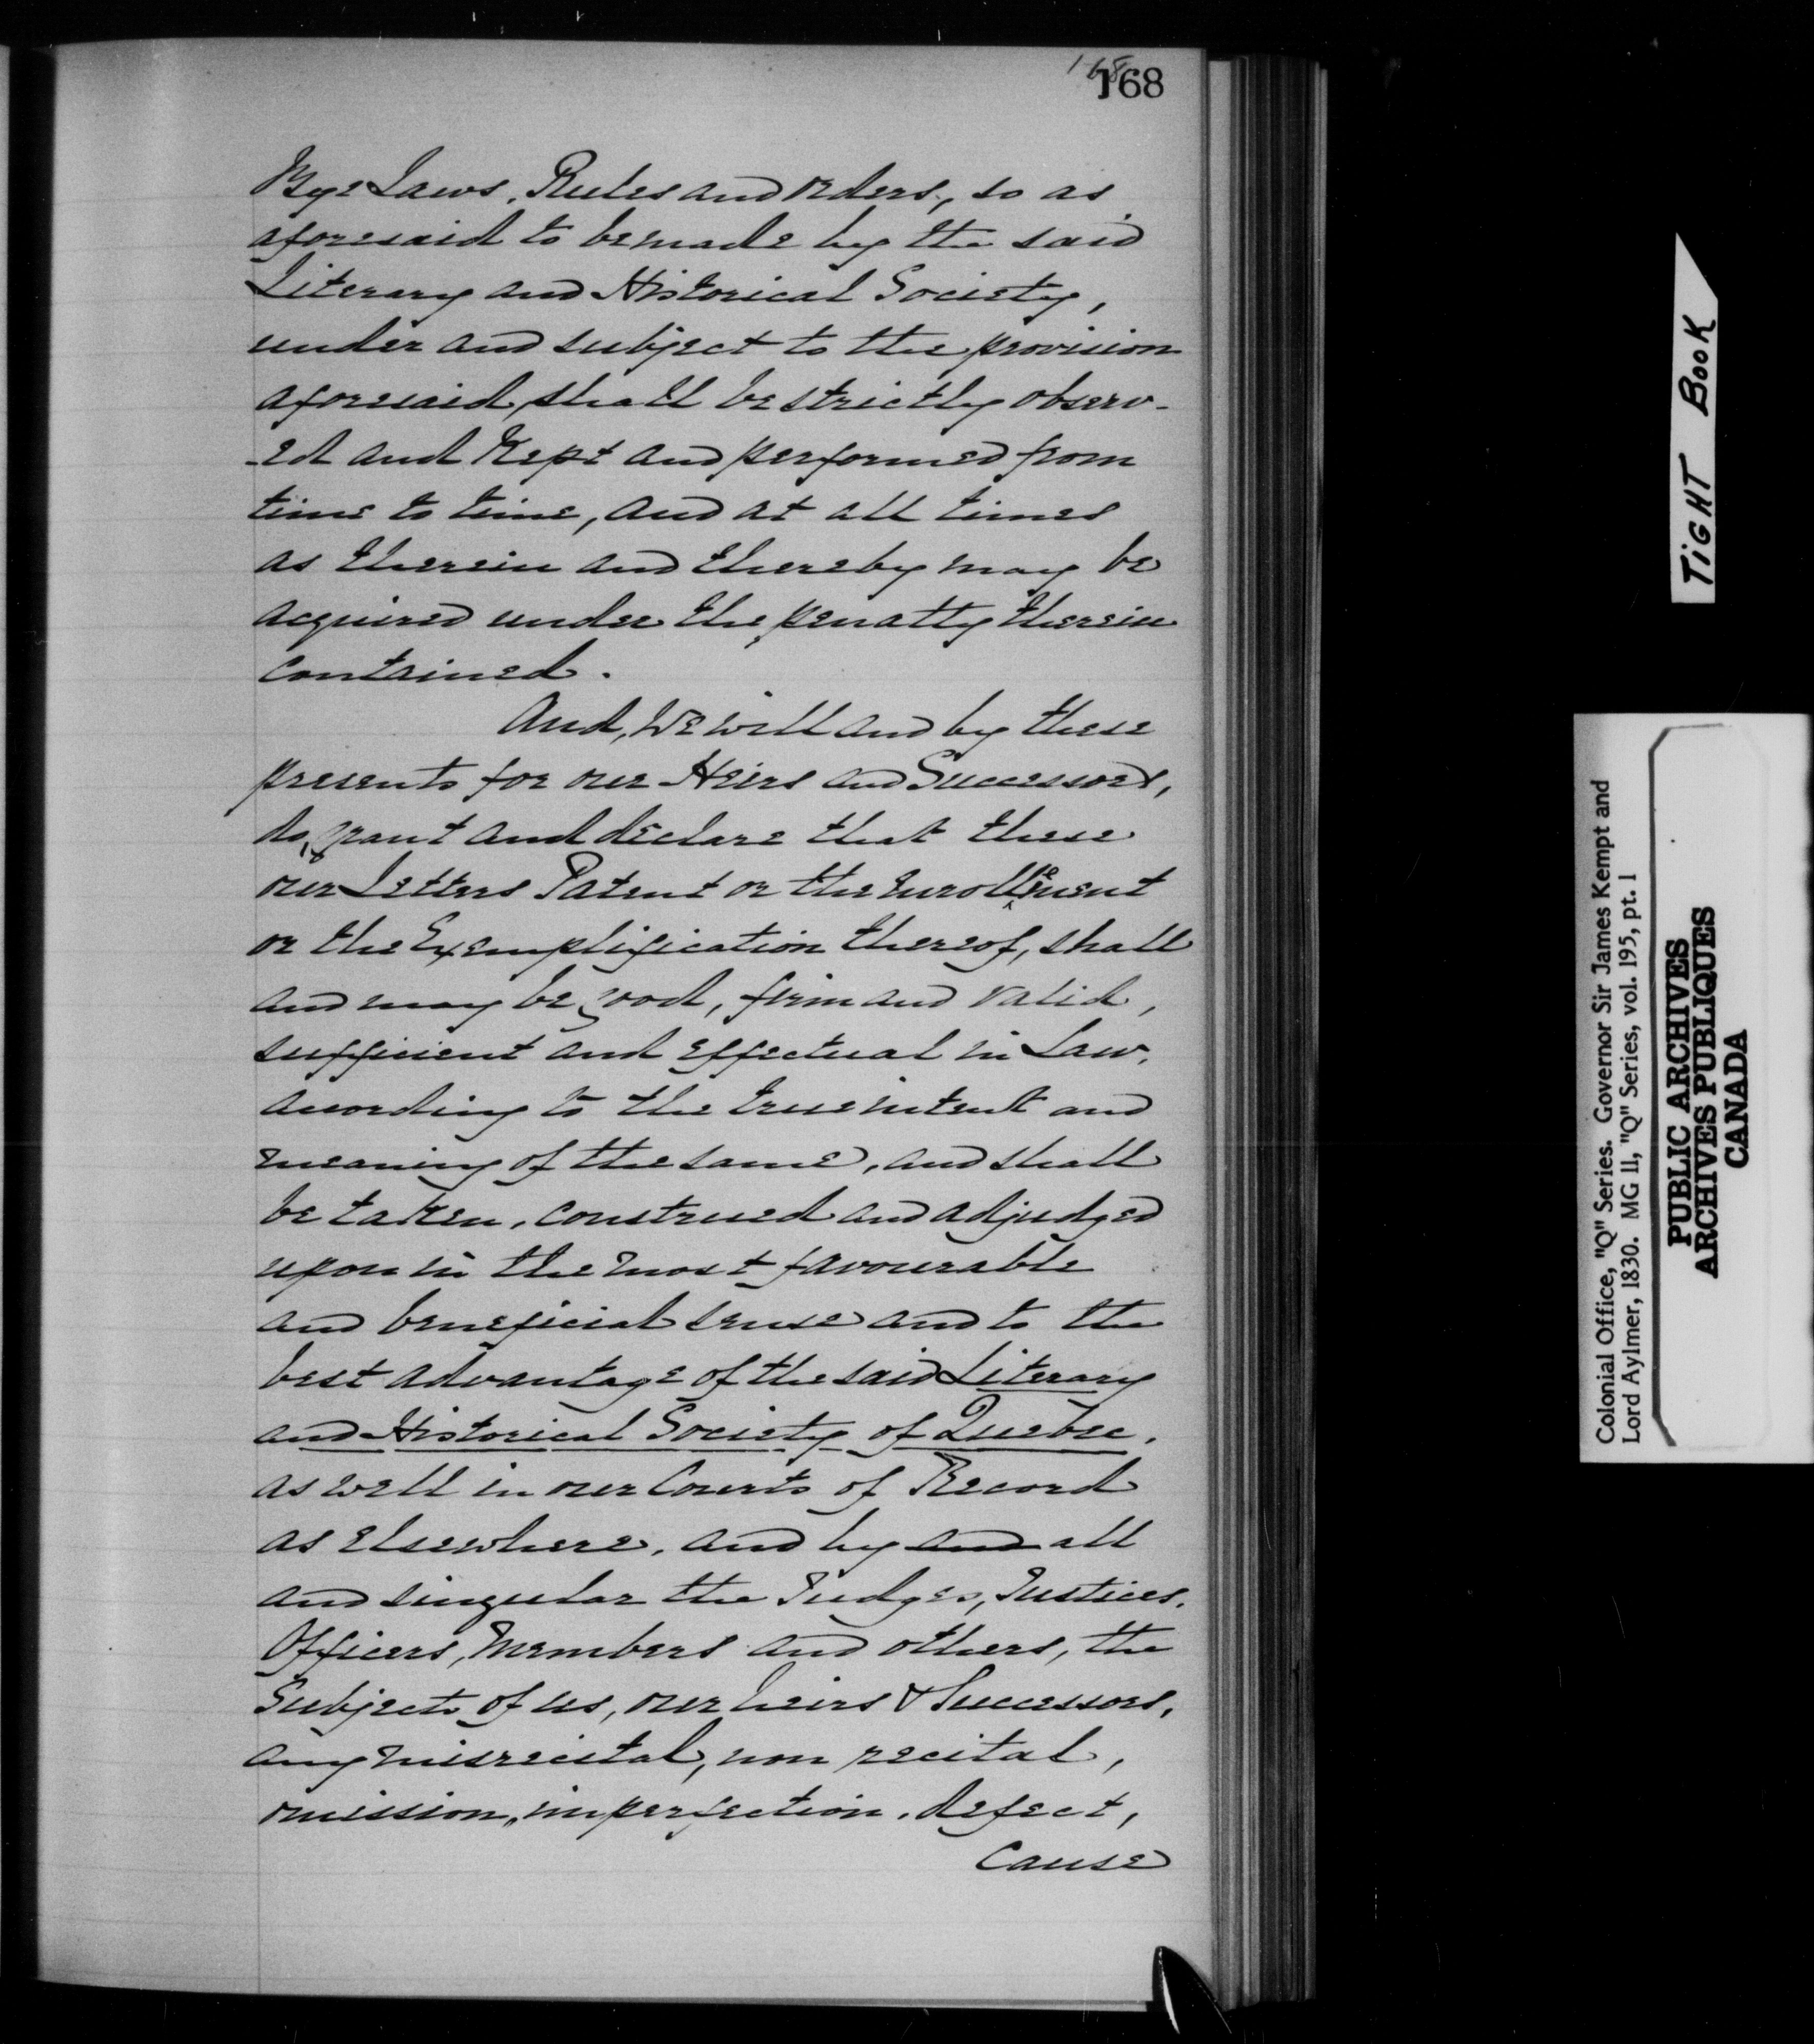 168
168
Bye Laws, Rules and orders, so as
aforesaid to be made by the said
Literary and Historical Society,
under and subject to the provision
aforesaid, shall be strictly observ-
-ed and Kept and performed from
time to time, and at all times
as therein and thereby may be
acquired under the penalty therein
contained.
And, We will and by these
presents for our Heirs and Successors,
do, grant and declare that these
our Letters Patent or the Enrollement
or the Exemplification thereof, shall
and may be good, firm and valid,
sufficient and effectual in Law,
according to the true intent and
meaning of the same, and shall
be taken, construed and adjudged
upon in the most favourable
and beneficial sense and to the
best advantage of the said Literary
and Historical Society of Quebec,
as well in our Courts of Record
as elsewhere, and by and all
and singular the Judges, Justices,
Officers, Members and others, the
Subjects of us, our heirs & Successors,
any misrecital, non recital,
omission, imperfection, defect,
Cause
TIGHT BOOK
Colonial Office, "Q" Series. Governor Sir James Kempt and
Lord Aylmer, 1830. MG 11, "Q" Series, vol. 195, pt. 1
PUBLIC ARCHIVES
ARCHIVES PUBLIQUES
CANADA